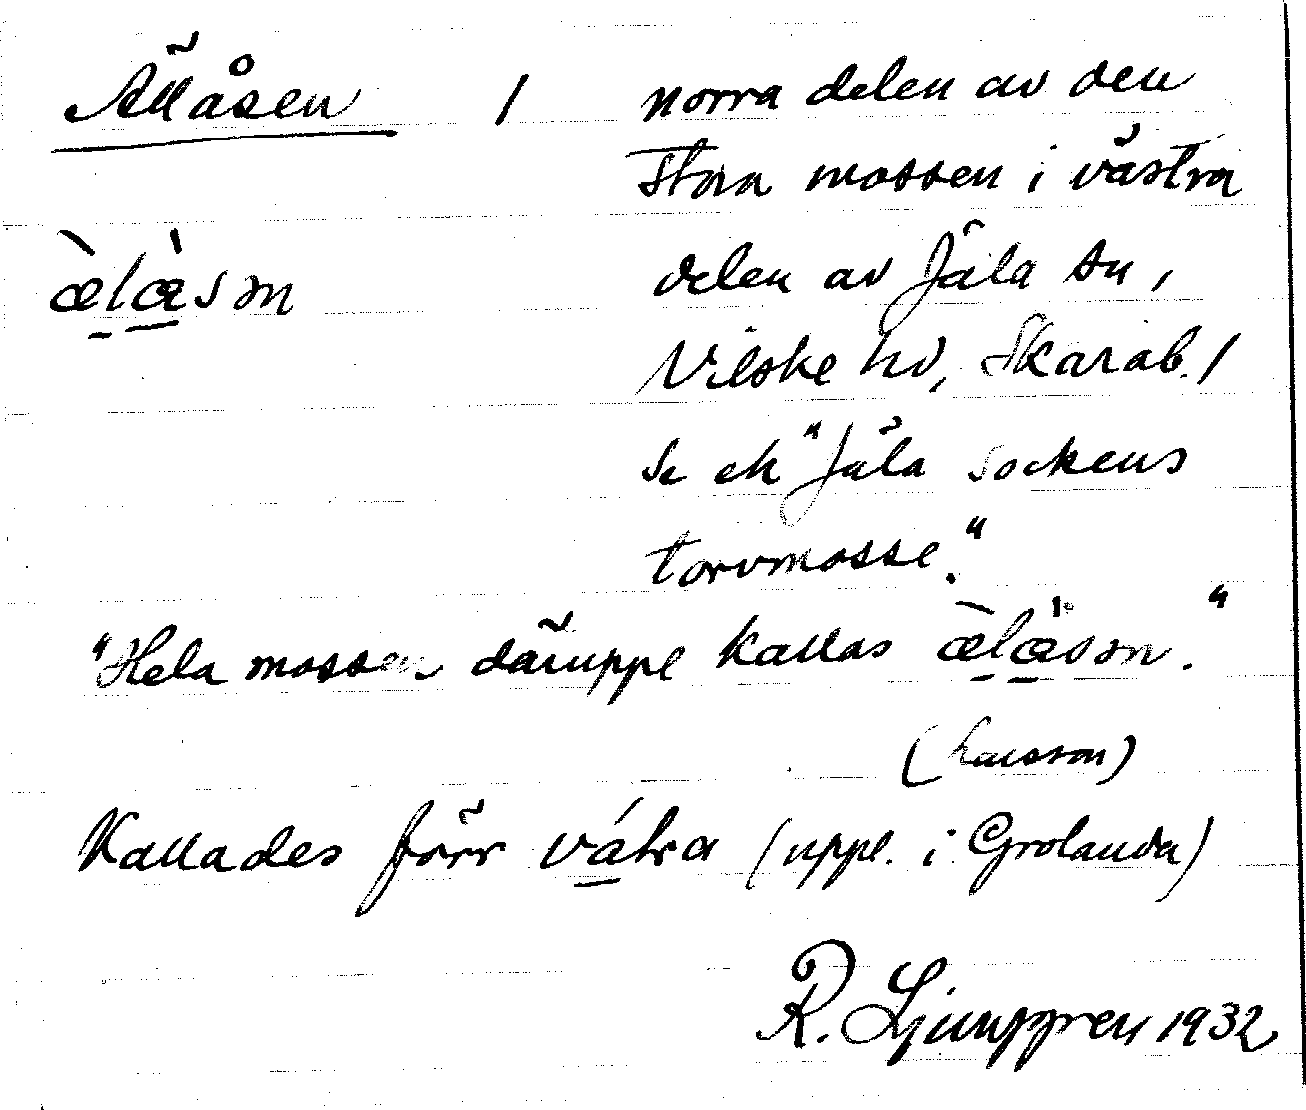 Ällåsen / norra delen av den
stora mossen i västra
æ̀læ̀sm delen av Jäla sn,
Vilske hd, Skarab. /
Se ek "Jäla sockens
torvmosse."
"Hela mossen däruppe kallas æ̀læ̀sm."
(Larsson)
Kallades förr (uppl. i Grolanda)
R. Ljunggren 1932